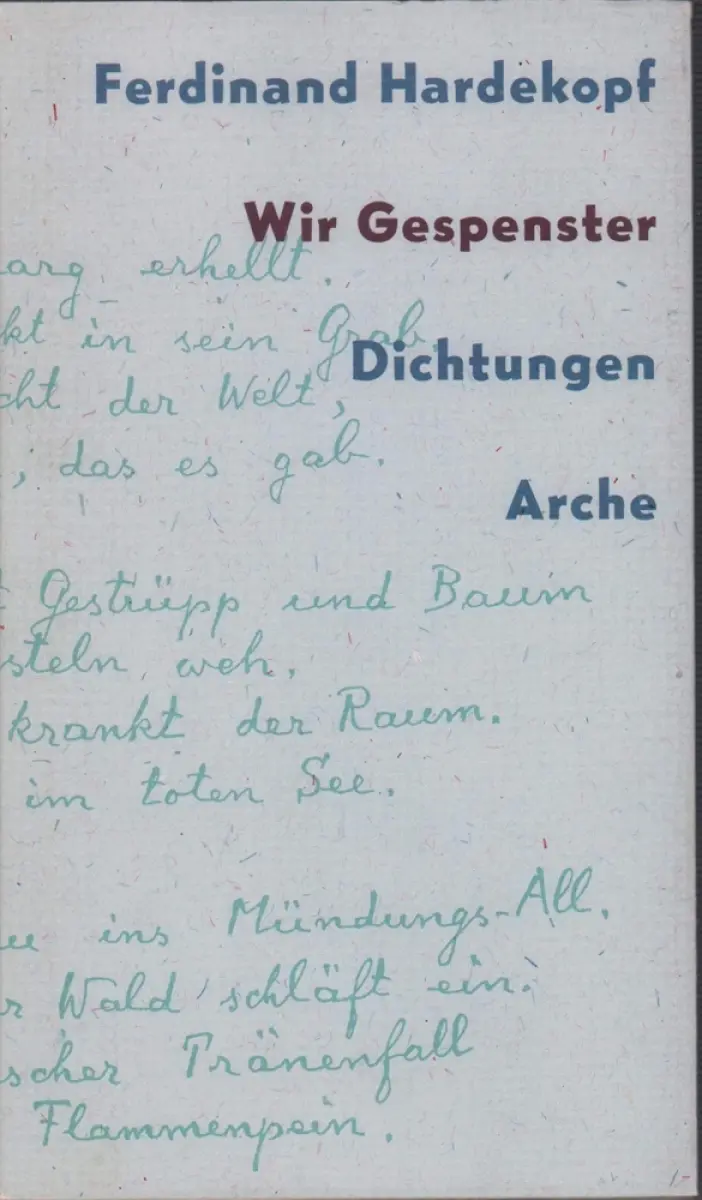 Ferdinand Hardekopf
Wir Gespenster
arg erhellt.
kt in sein Grab.
Dichtungen
cht der Welt,
, das es gab.
Arche
Gestrüpp und Baum
steln weh.
krankt der Raum.
im toten See.
ins Mündungs-All.
r Wald schläft ein.
scher Tränenfall
Flammenpein.